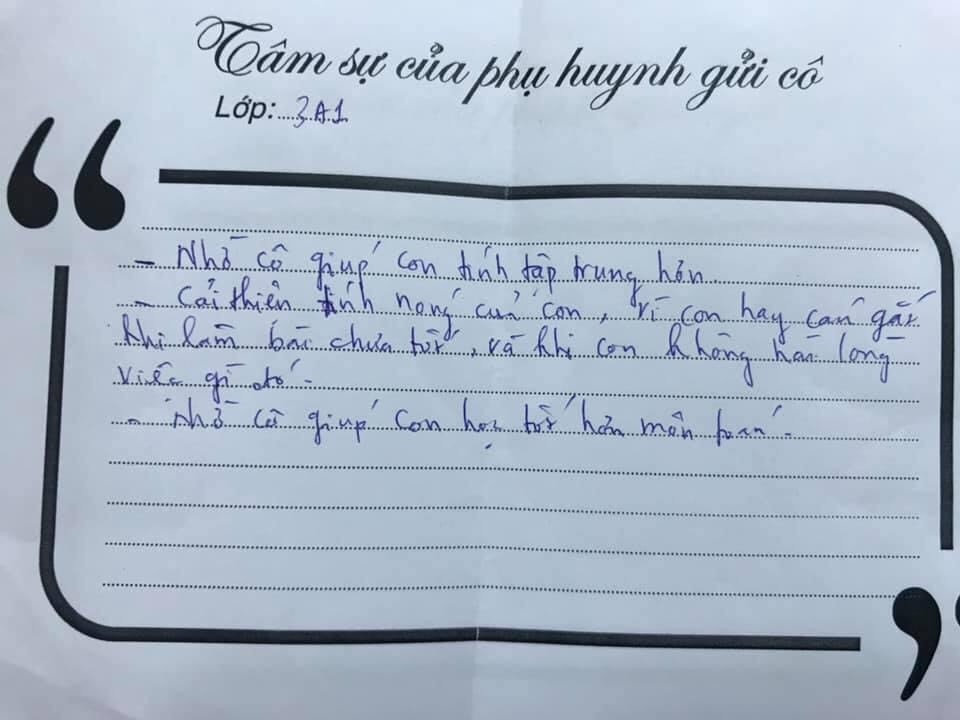 Tâm sự của phụ huynh gửi cô
Lớp: 3A1
- Nhờ cô giúp con tính tập trung hơn.
- Cải thiện tính nóng của con, vì con hay cáu gắt
khi làm bài chưa tốt, và khi con không hài lòng
việc gì đó.
- Nhờ cô giúp con học tốt hơn môn toán.